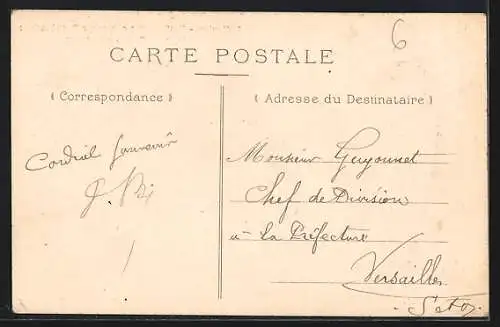 6
CARTE POSTALE
( Correspondance )
( Adresse du Destinataire )
Cordial souvenir
Monsieur Guyonnet
Chef de Division
à la Préfecture
Versailles
S et O.